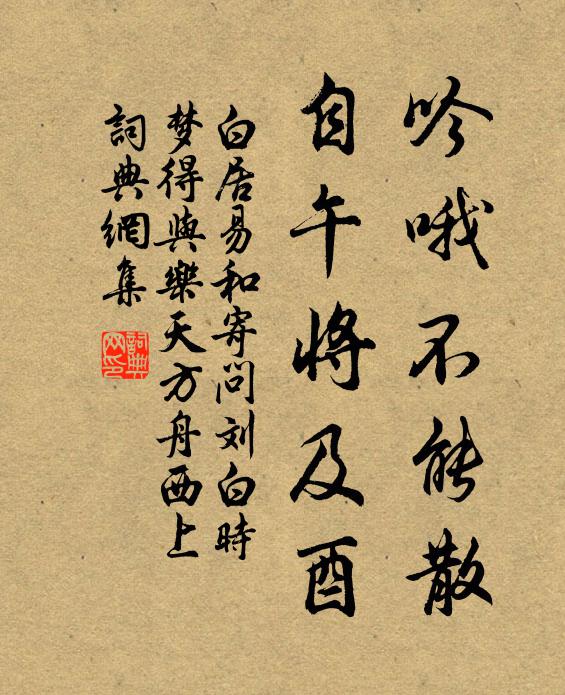 吟哦不能散
自午將及酉
白居易和寄问刘白時
梦得與樂天方舟西上
詞典網集
詞典
网印